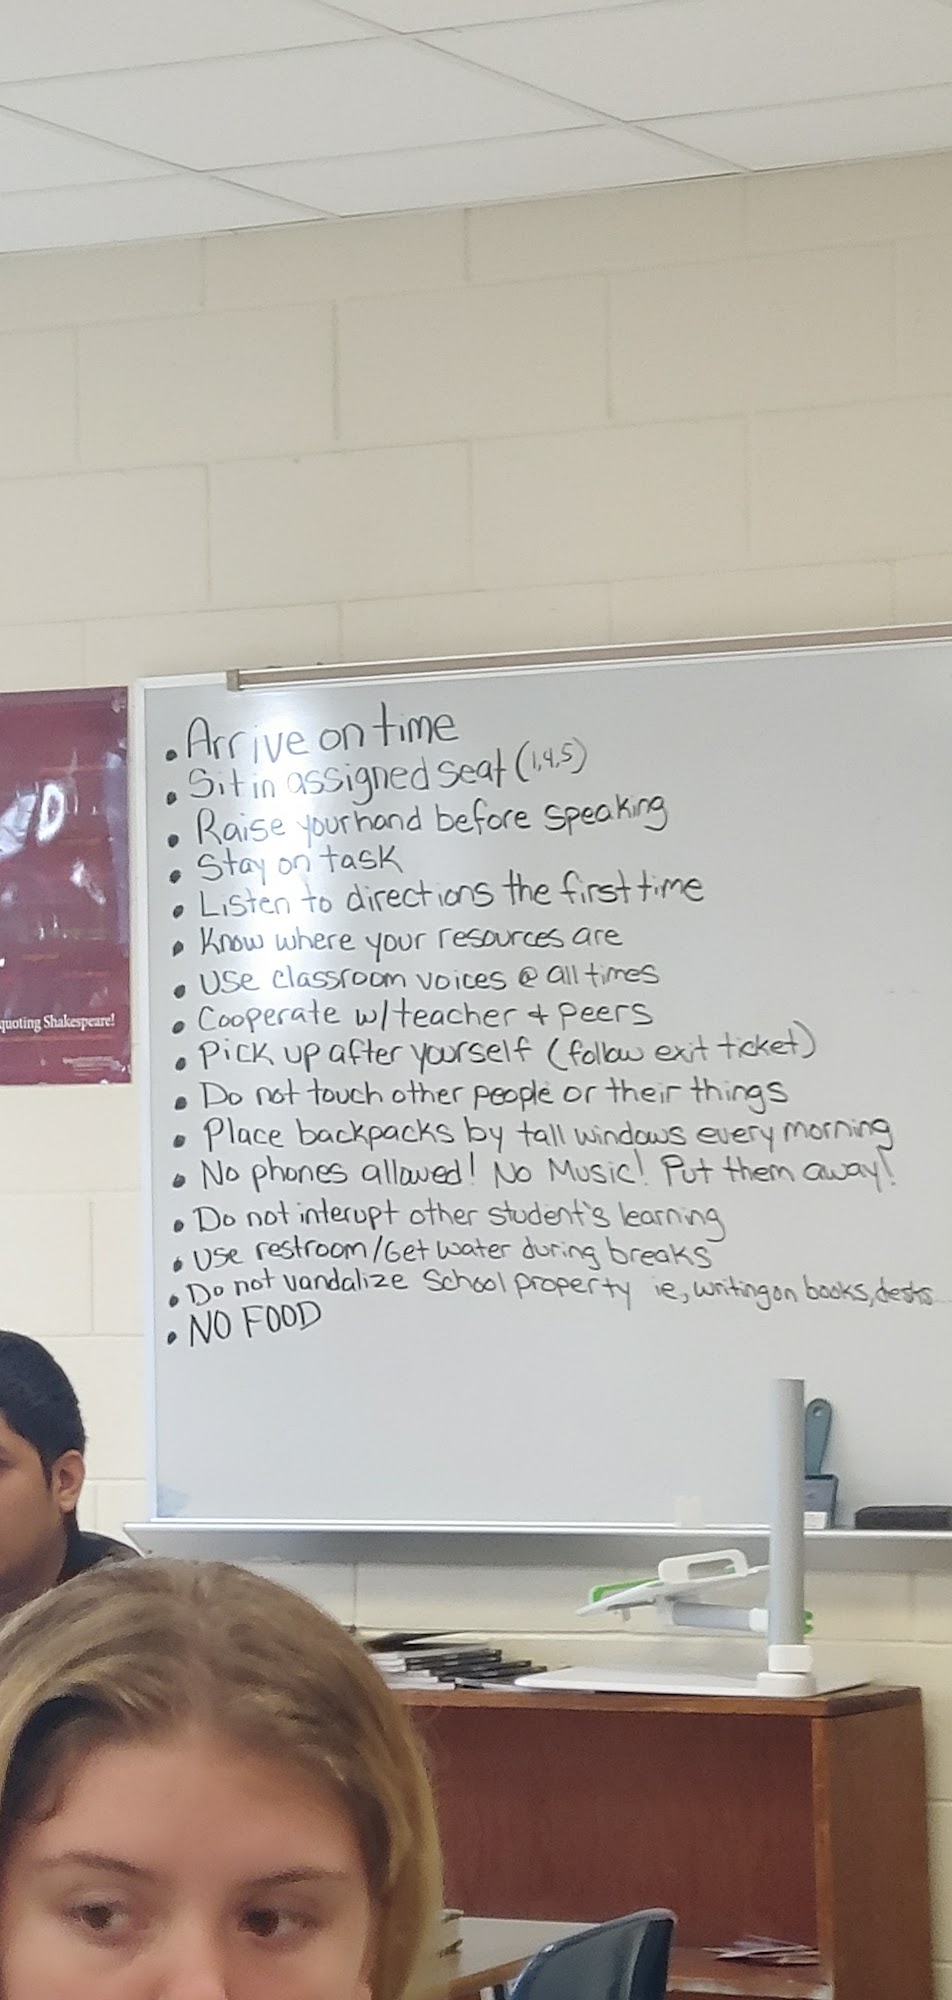 • Arrive on time
• Sit in assigned seat (1,4,5)
• Raise your hand before speaking
• Stay on task
• Listen to directions the first time
• Know where your resources are
• Use classroom voices @ all times
• Cooperate w/ teacher + peers
• Pick up after yourself (follow exit ticket)
• Do not touch other people or their things
• Place backpacks by tall windows every morning
• No phones allowed! No Music! Put them away!
• Do not interupt other student's learning
• Use restroom/Get water during breaks
• Do not vandalize School property ie, writing on books, desks...
• NO FOOD
quoting Shakespeare!